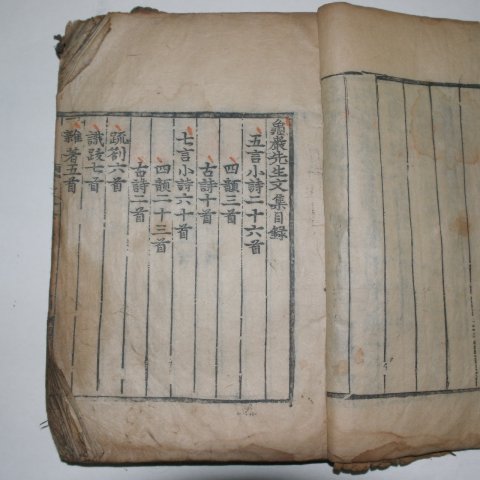 龜巖先生文集目錄
五言小詩二十六首
四韻三首
古詩十首
七言小詩六十首
四韻二十三首
古詩二首
疏劄六首
識跋七首
雜著五首